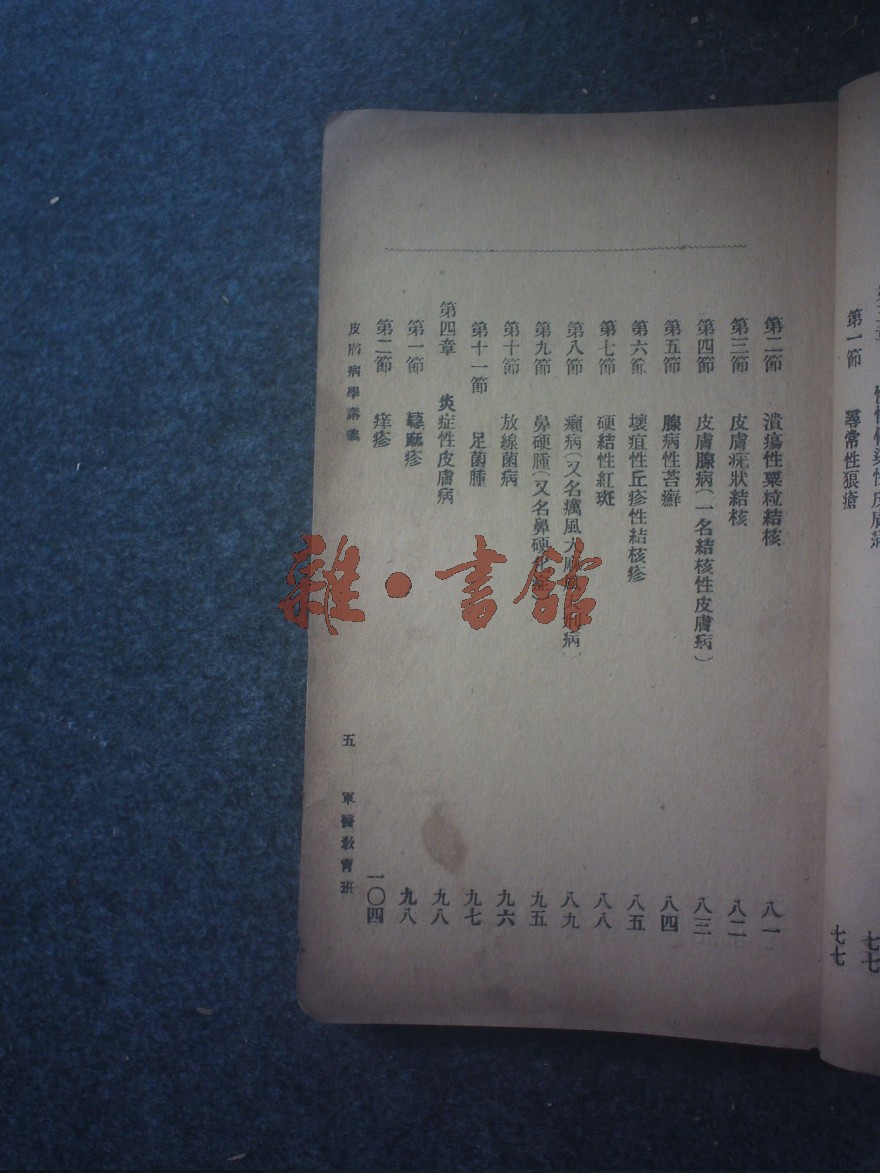 第一節　尋常性狼瘡　七七
第二節　潰瘍性粟粒結核　八一
第三節　皮膚疣狀結核　八二
第四節　皮膚腺病(一名結核性皮膚病)　八三
第五節　腺病性苔癬　八四
第六節　壞疽性丘疹性結核疹　八五
第七節　硬結性紅斑　八八
第八節　癩病(又名癘風大麻風　病)　八九
第九節　鼻硬腫(又名鼻硬化症)　九五
第十節　放線菌病　九六
第十一節　足菌腫　九七
第四章　炎症性皮膚病　九八
第一節　蕁麻疹　九八
第二節　痒疹　一〇四
皮膚病學講義　五　軍醫教育班
雜·書館